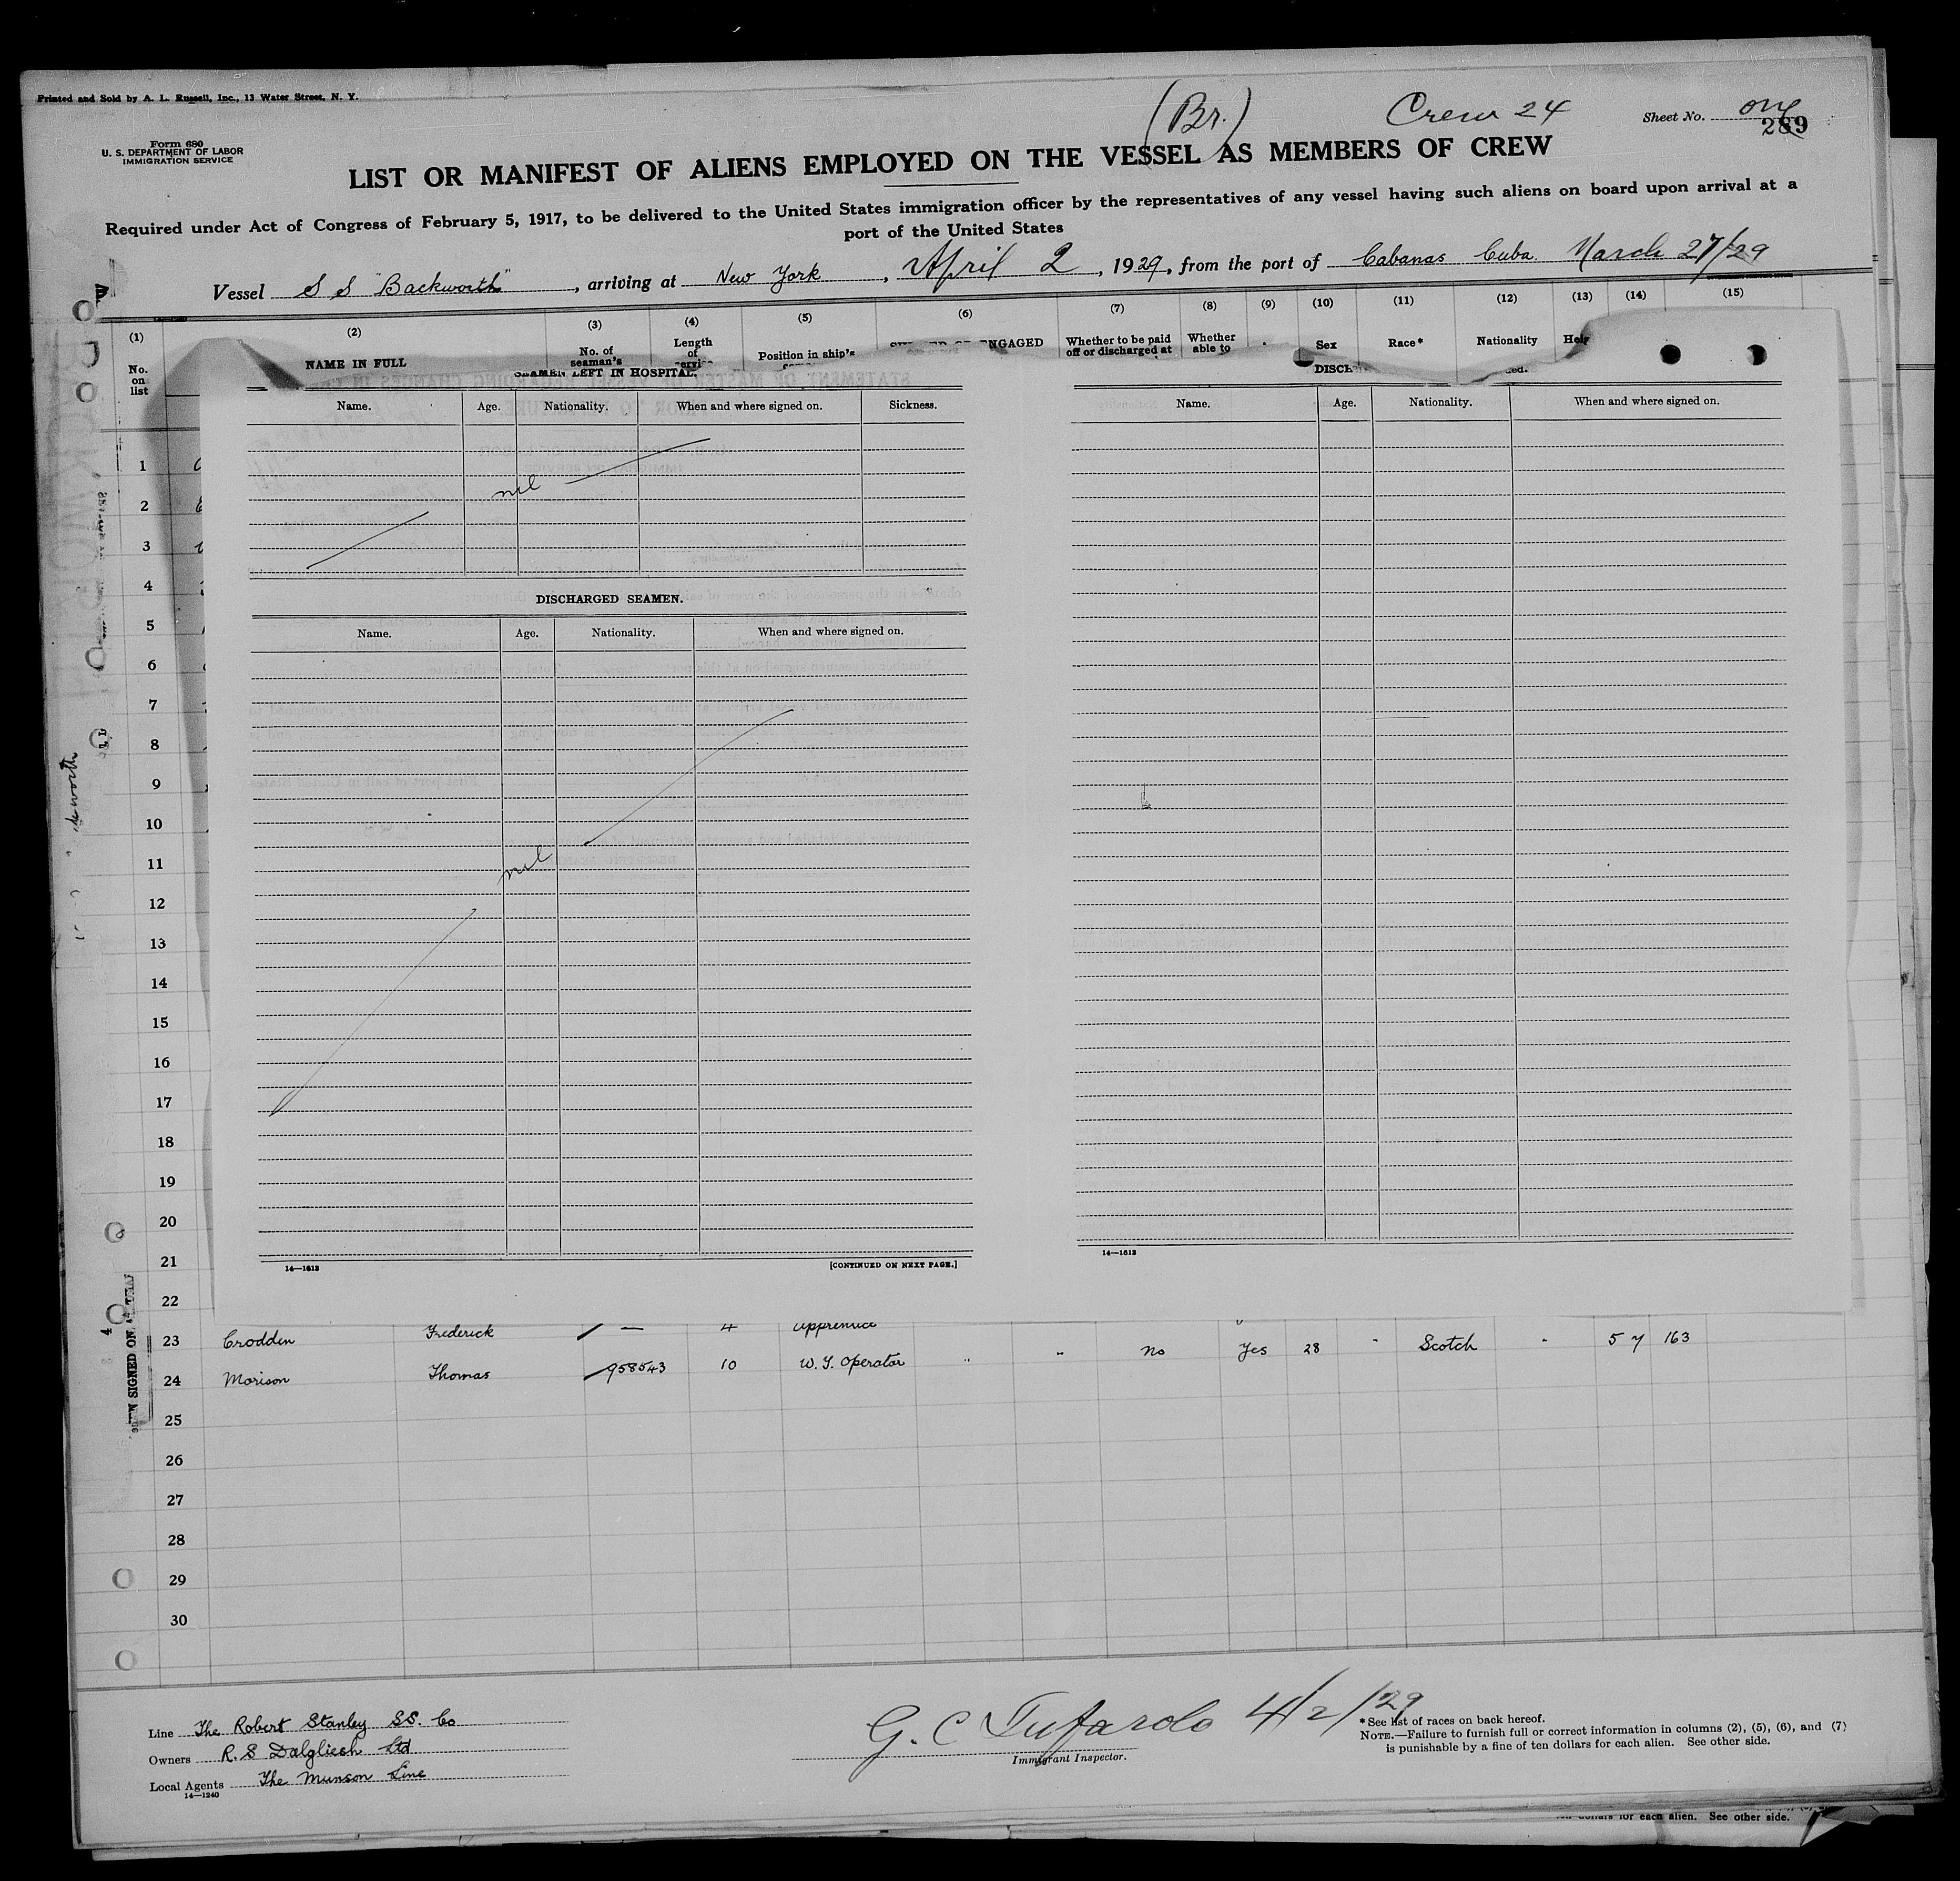 Printed and Sold by A. L. Russell, Inc., 13 Water Street, N. Y.
(Br.) Crew 24 Sheet No. one
289
Form 680
U. S. DEPARTMENT OF LABOR
IMMIGRATION SERVICE
LIST OR MANIFEST OF ALIENS EMPLOYED ON THE VESSEL AS MEMBERS OF CREW
Required under Act of Congress of February 5, 1917, to be delivered to the United States immigration officer by the representatives of any vessel having such aliens on board upon arrival at a
port of the United States
Vessel S S "Backworth", arriving at New York, April 2, 1929, from the port of Cabanas Cuba. March 27/29
(1) (2) (3) (4) (5) (6) (7) (8) (9) (10) (11) (12) (13) (14) (15)
No. on list NAME IN FULL No. of seaman's Length of Position in ship's ENGAGED Whether to be paid off or discharged at Whether able to Sex Race* Nationality
SEAMEN LEFT IN HOSPITAL.
Name. Age. Nationality. When and where signed on. Sickness.
nil
DISCHARGED SEAMEN.
Name. Age. Nationality. When and where signed on.
nil
14—1613 [CONTINUED ON NEXT PAGE.]
Name. Age. Nationality. When and where signed on.
14—1613
1
2
3
4
5
6
7
8
9
10
11
12
13
14
15
16
17
18
19
20
21
22
23 Crodden Frederick — 4 Apprentice
24 Morison Thomas 958543 10 W. T. Operator " " no Yes 28 " Scotch " 5 7 163
25
26
27
28
29
30
Line The Robert Stanley SS. Co
Owners R. S Dalgliesh Ltd
Local Agents The Munson Line
14—1240
G. C. Tufarolo 4/2/29
Immigrant Inspector.
*See list of races on back hereof.
NOTE.—Failure to furnish full or correct information in columns (2), (5), (6), and (7)
is punishable by a fine of ten dollars for each alien. See other side.
dollars for each alien. See other side.